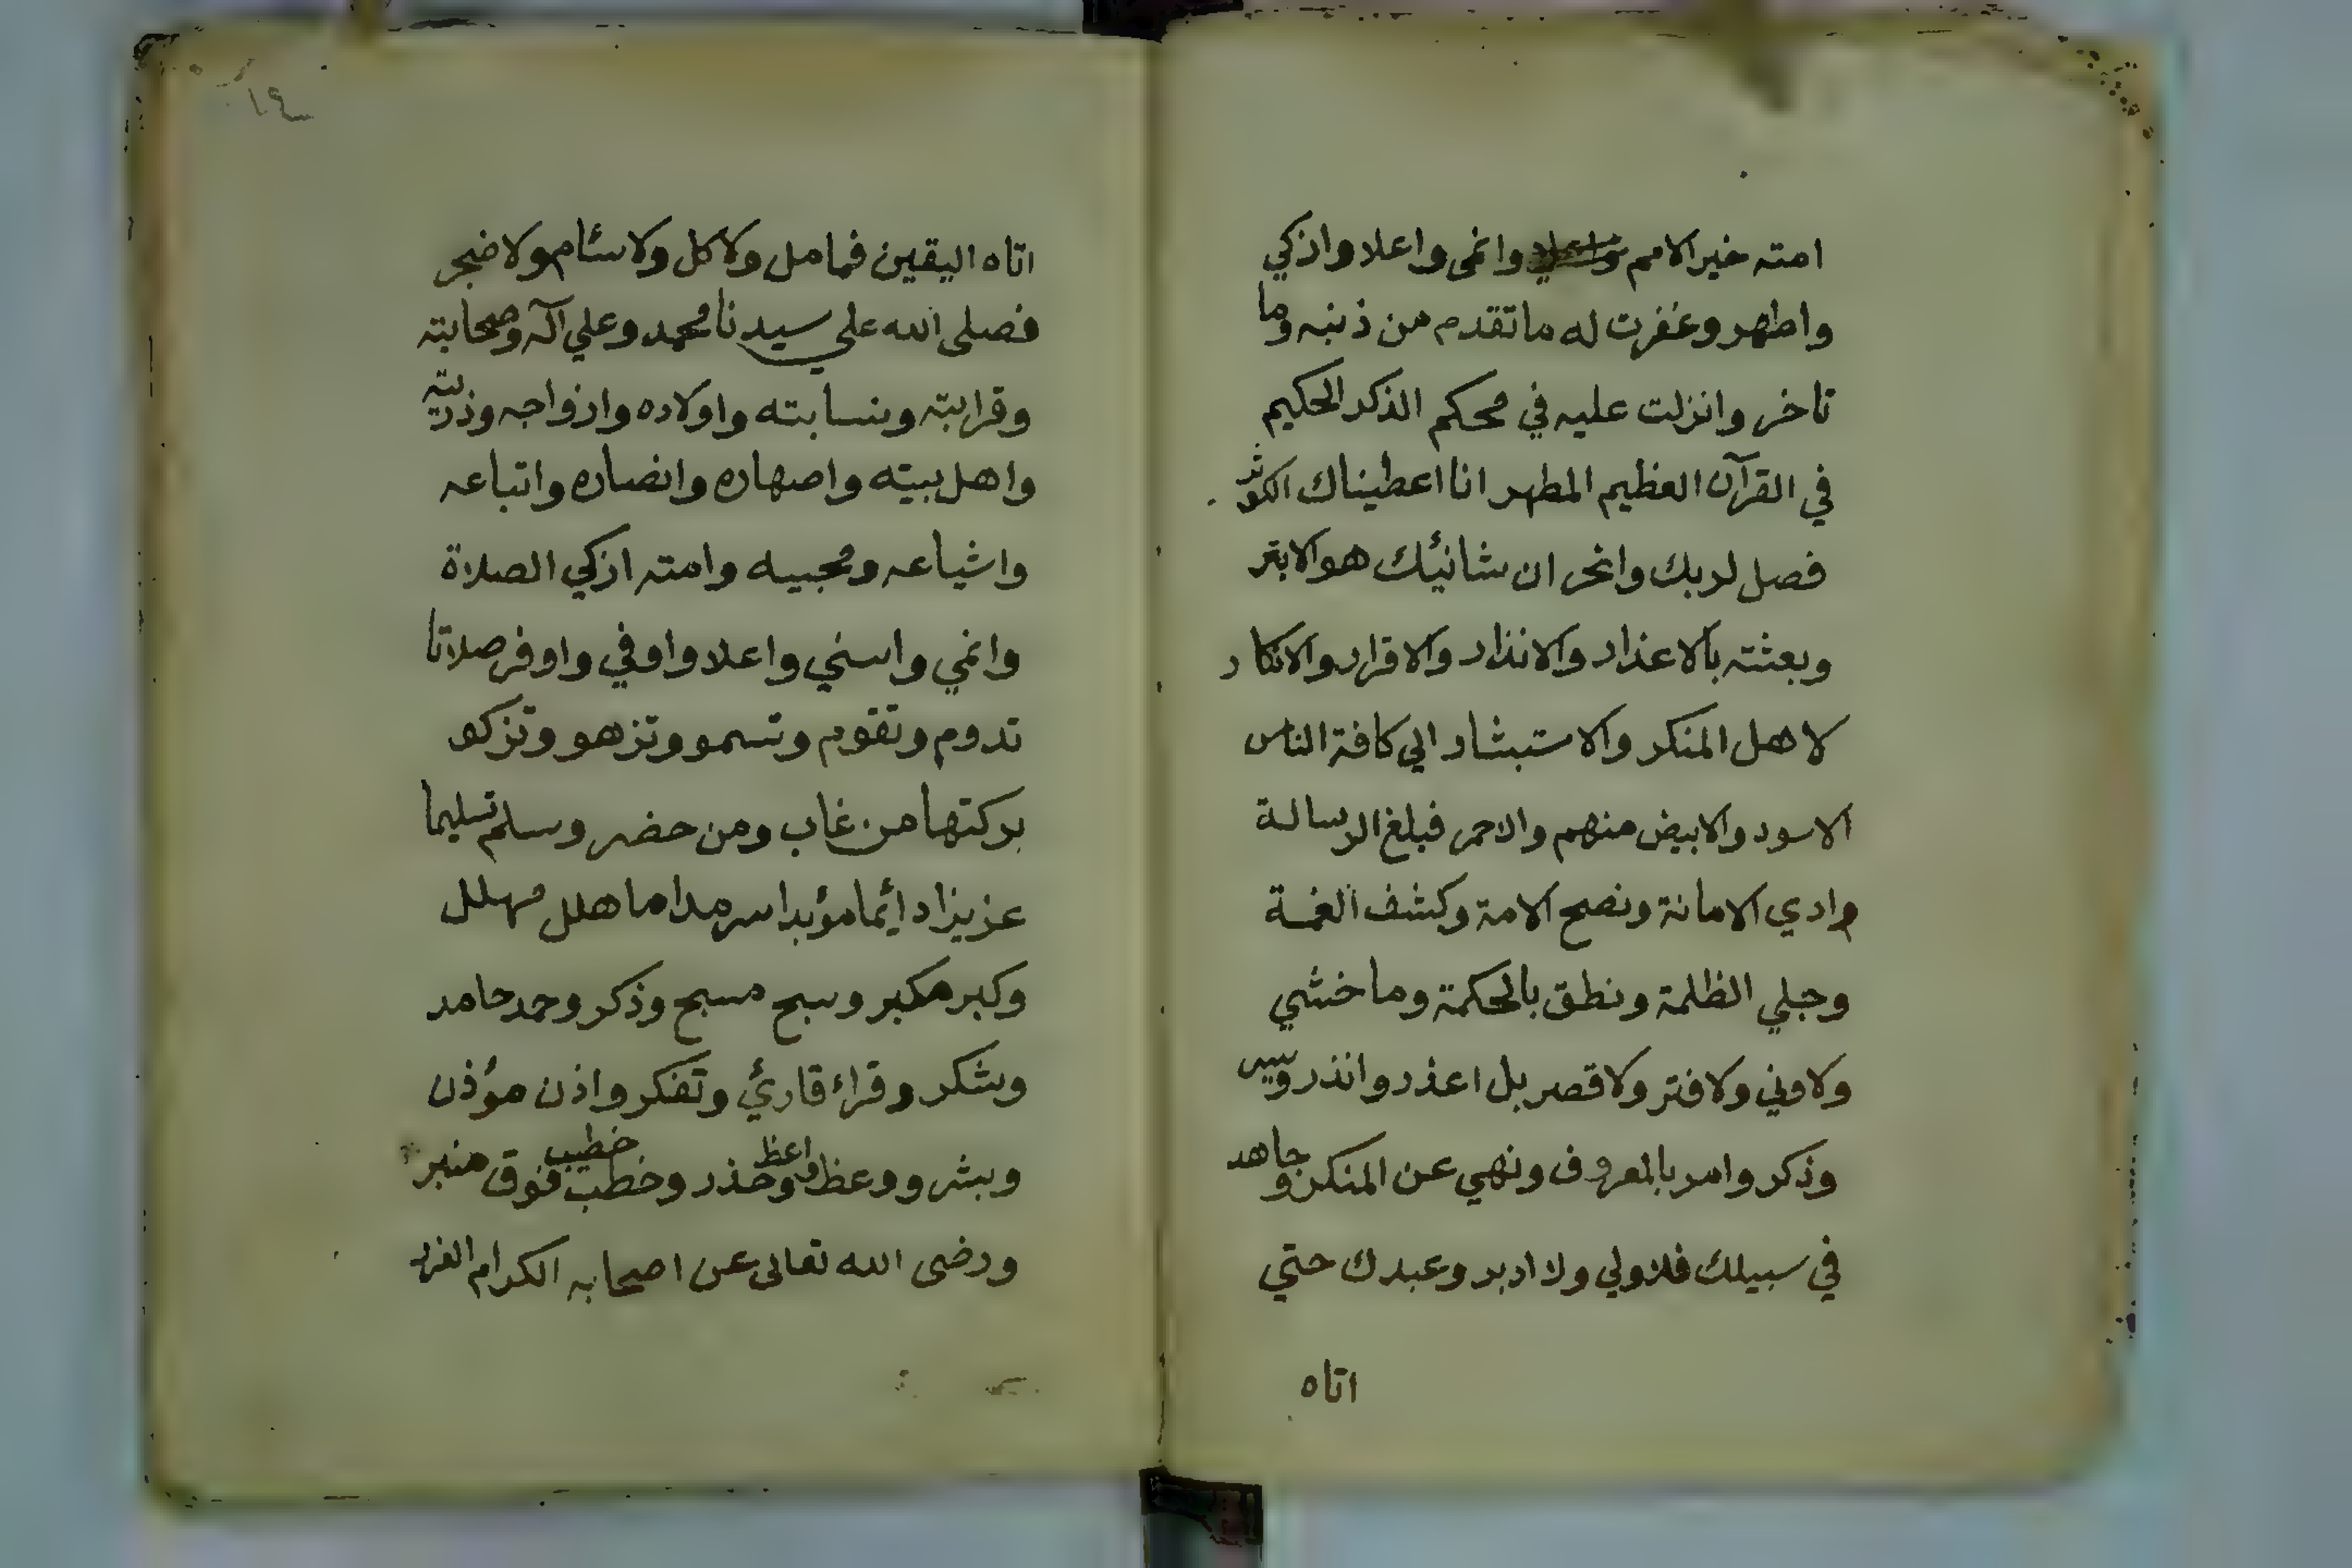 امته خير الامم وانمى واعلا وازكي
واطهر وغفرت له ما تقدم من ذنبه وما
تاخر وانزلت عليه في محكم الذكر الحكيم
في القرآن العظيم المطهر انا اعطيناك الكوثر
فصل لربك وانحر ان شانئك هو الابتر
وبعثته بالاعذار والانذار والاقرار والانكار
لاهل المنكر والاستبشار الي كافة الناس
الاسود والابيض منهم والاحمر فبلغ الرسالة
وادي الامانة ونصح الامة وكشف الغمة
وجلي الظلمة ونطق بالحكمة وما خشي
ولا وني ولا فتر ولا قصر بل اعذر وانذر ويسر
وذكر وامر بالمعروف ونهي عن المنكر وجاهد
في سبيلك فلا ولي ولا ادبر وعبدك حتي
اتاه
اتاه اليقين فما مل ولا كل ولا سئام ولا ضجر
فصلى الله علي سيدنا محمد وعلي آله وصحابته
وقرابته ونسابته واولاده وازواجه وذريته
واهل بيته واصهاره وانصاره واتباعه
واشياعه ومحبيه وامته ازكي الصلاة
وانمي واسني واعلا واوفي واوفر صلاتا
تدوم وتقوم وتسمو وتزهو وتزكو
بركتها من غاب ومن حضر وسلم تسليما
عزيزا دائما مؤبدا سرمدا ما هلل مهلل
وكبر مكبر وسبح مسبح وذكر وحمد حامد
وشكر وقراء قارئ وتفكر واذن مؤذن
وبشر ووعظ واعظ وحذر وخطب خطيب فوق منبر
ورضى الله تعالى عن اصحابه الكرام الغرر